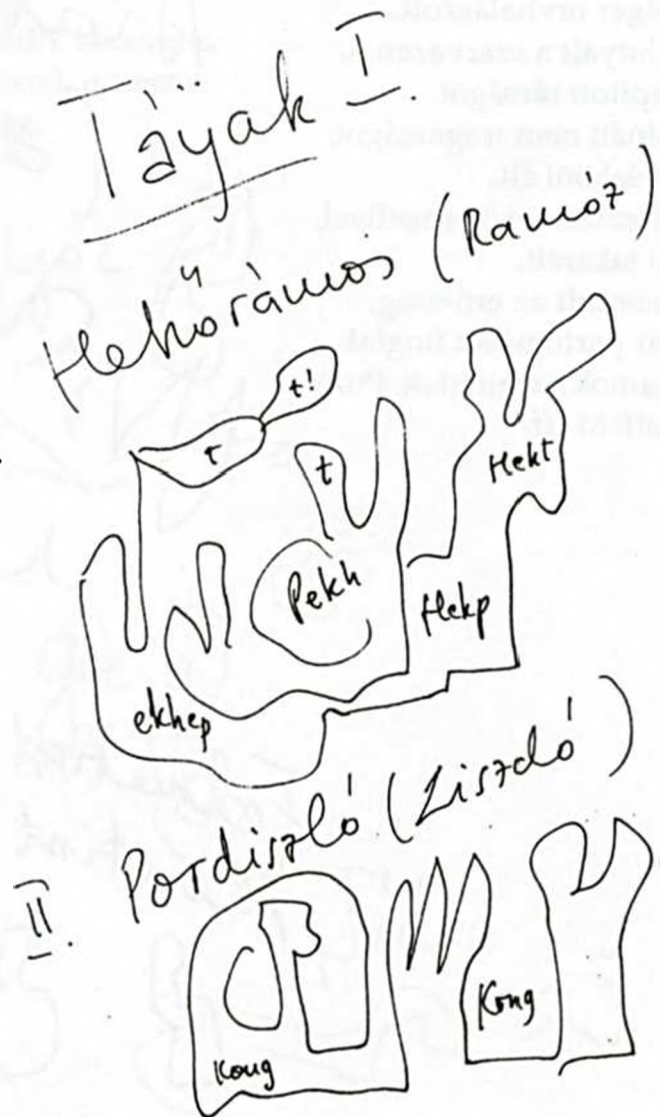 Tájak I.
Hehőrámos (Ramóz)
t!
t
t
Hekt
Pekh
Hekp
ekhep
II. Pozdiszló (Ziszdó)
Kong
Kong